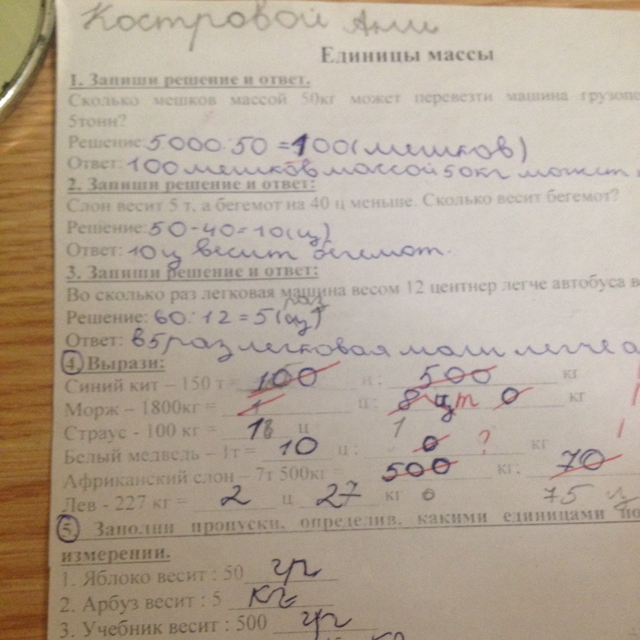 Костровой Ани
Единицы массы
1. Запиши решение и ответ.
Сколько мешков массой 50кг может перевезти машина грузопо
5тонн?
Решение: 5000:50=100(мешков)
Ответ: 100 мешков массой 50кг может
2. Запиши решение и ответ:
Слон весит 5 т, а бегемот на 40 ц меньше. Сколько весит бегемот?
Решение: 50-40=10(ц)
Ответ: 10ц весит бегемот.
3. Запиши решение и ответ:
Во сколько раз легковая машина весом 12 центнер легче автобуса ве
Решение: 60:12=5
Ответ: 5 раз легковая маши легче а
4 Вырази:
Синий кит – 150 т = 100 ц ; 500 кг
Морж – 1800кг = ц; 8 цт 0 кг
Страус - 100 кг = 1 ц 0 ? кг
Белый медведь – 1т= 10 ц ;
Африканский слон – 7т 500кг = 500 кг; 70
Лев - 227 кг = 2 ц 27 кг 75 ц
5 Заполни пропуски, определив, какими единицами по
измерении.
1. Яблоко весит : 50 гр
2. Арбуз весит : 5 кг
3. Учебник весит : 500 гр